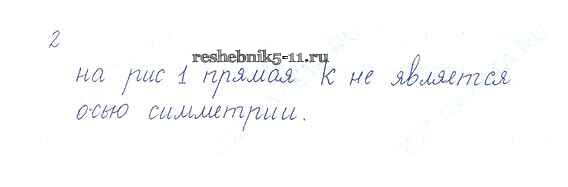 2
reshebnik5-11.ru
на рис 1 прямая k не является
осью симметрии.